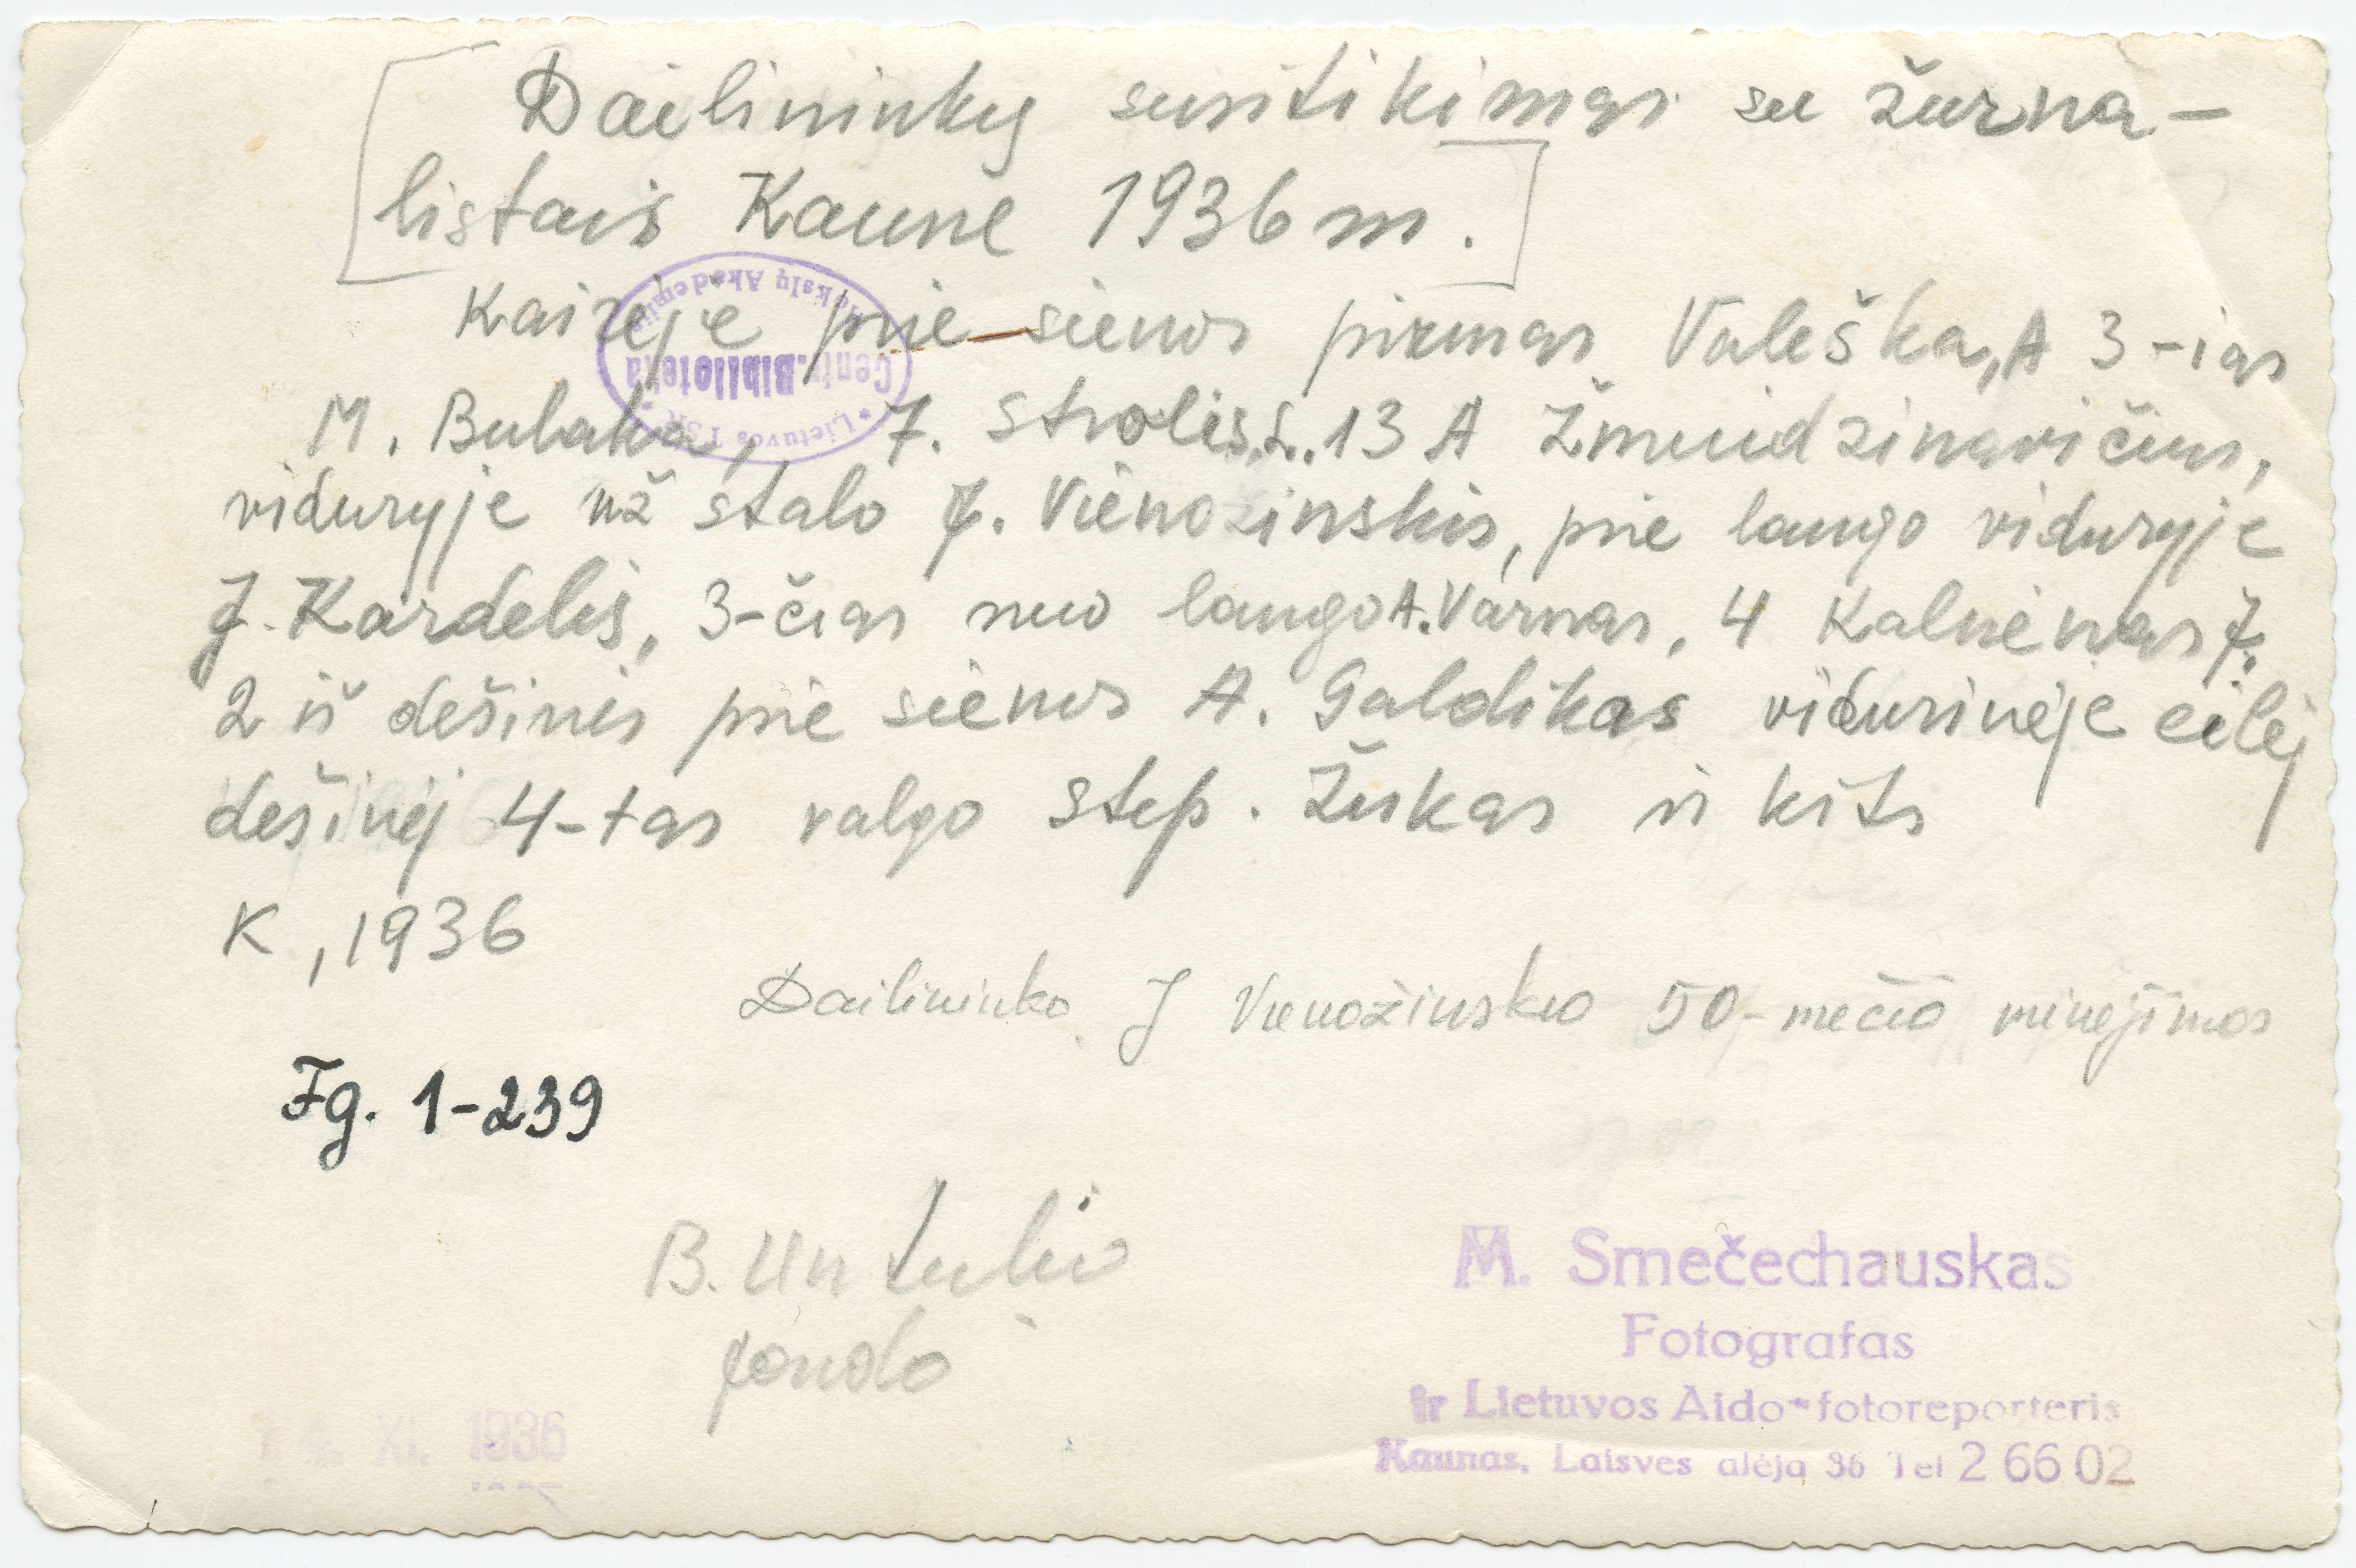 Dailininkų susitikimas su žurna-
listais Kaune 1936 m.
Kairėje prie sienos pirmas Valeška, A 3-ias
M. Bulaka, J. Strolis, 13 A Žmuidzinavičius,
viduryje už stalo J. Vienožinskis, prie lango viduryje
J. Kardelis, 3-čias nuo lango A. Varnas, 4 Kalnėnas J.
2 iš dešinės prie sienos A. Galdikas vidurinėje eilėj
dešinėj 4-tas valgo Step. Žukas ir kiti
K, 1936
Dailininko J Vienožinskio 50-mečio minėjimas
Fg. 1-239
B. Untulio
fondo
Lietuvos TSR Mokslų Akademija
Centr. Biblioteka
M. Smečechauskas
Fotografas
ir Lietuvos Aido fotoreporteris
Kaunas, Laisvės alėja 36 Tel 2 66 02
XI. 1936